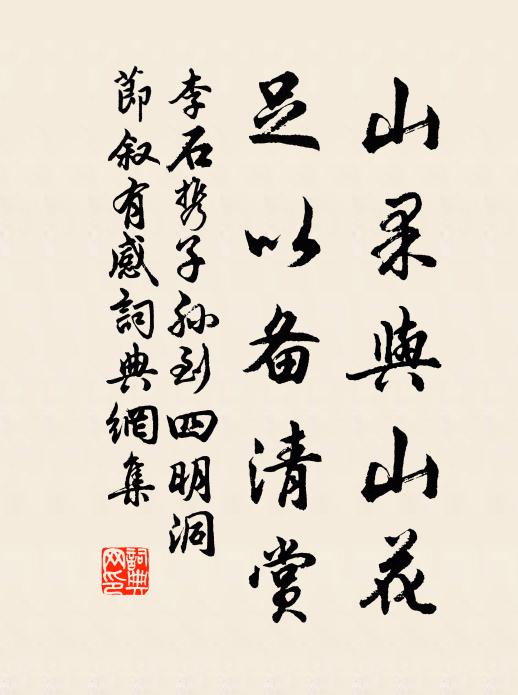 山果與山花
足以备清赏
李石携子孙到四明洞
節叙有感詞典網集
詞典
网印